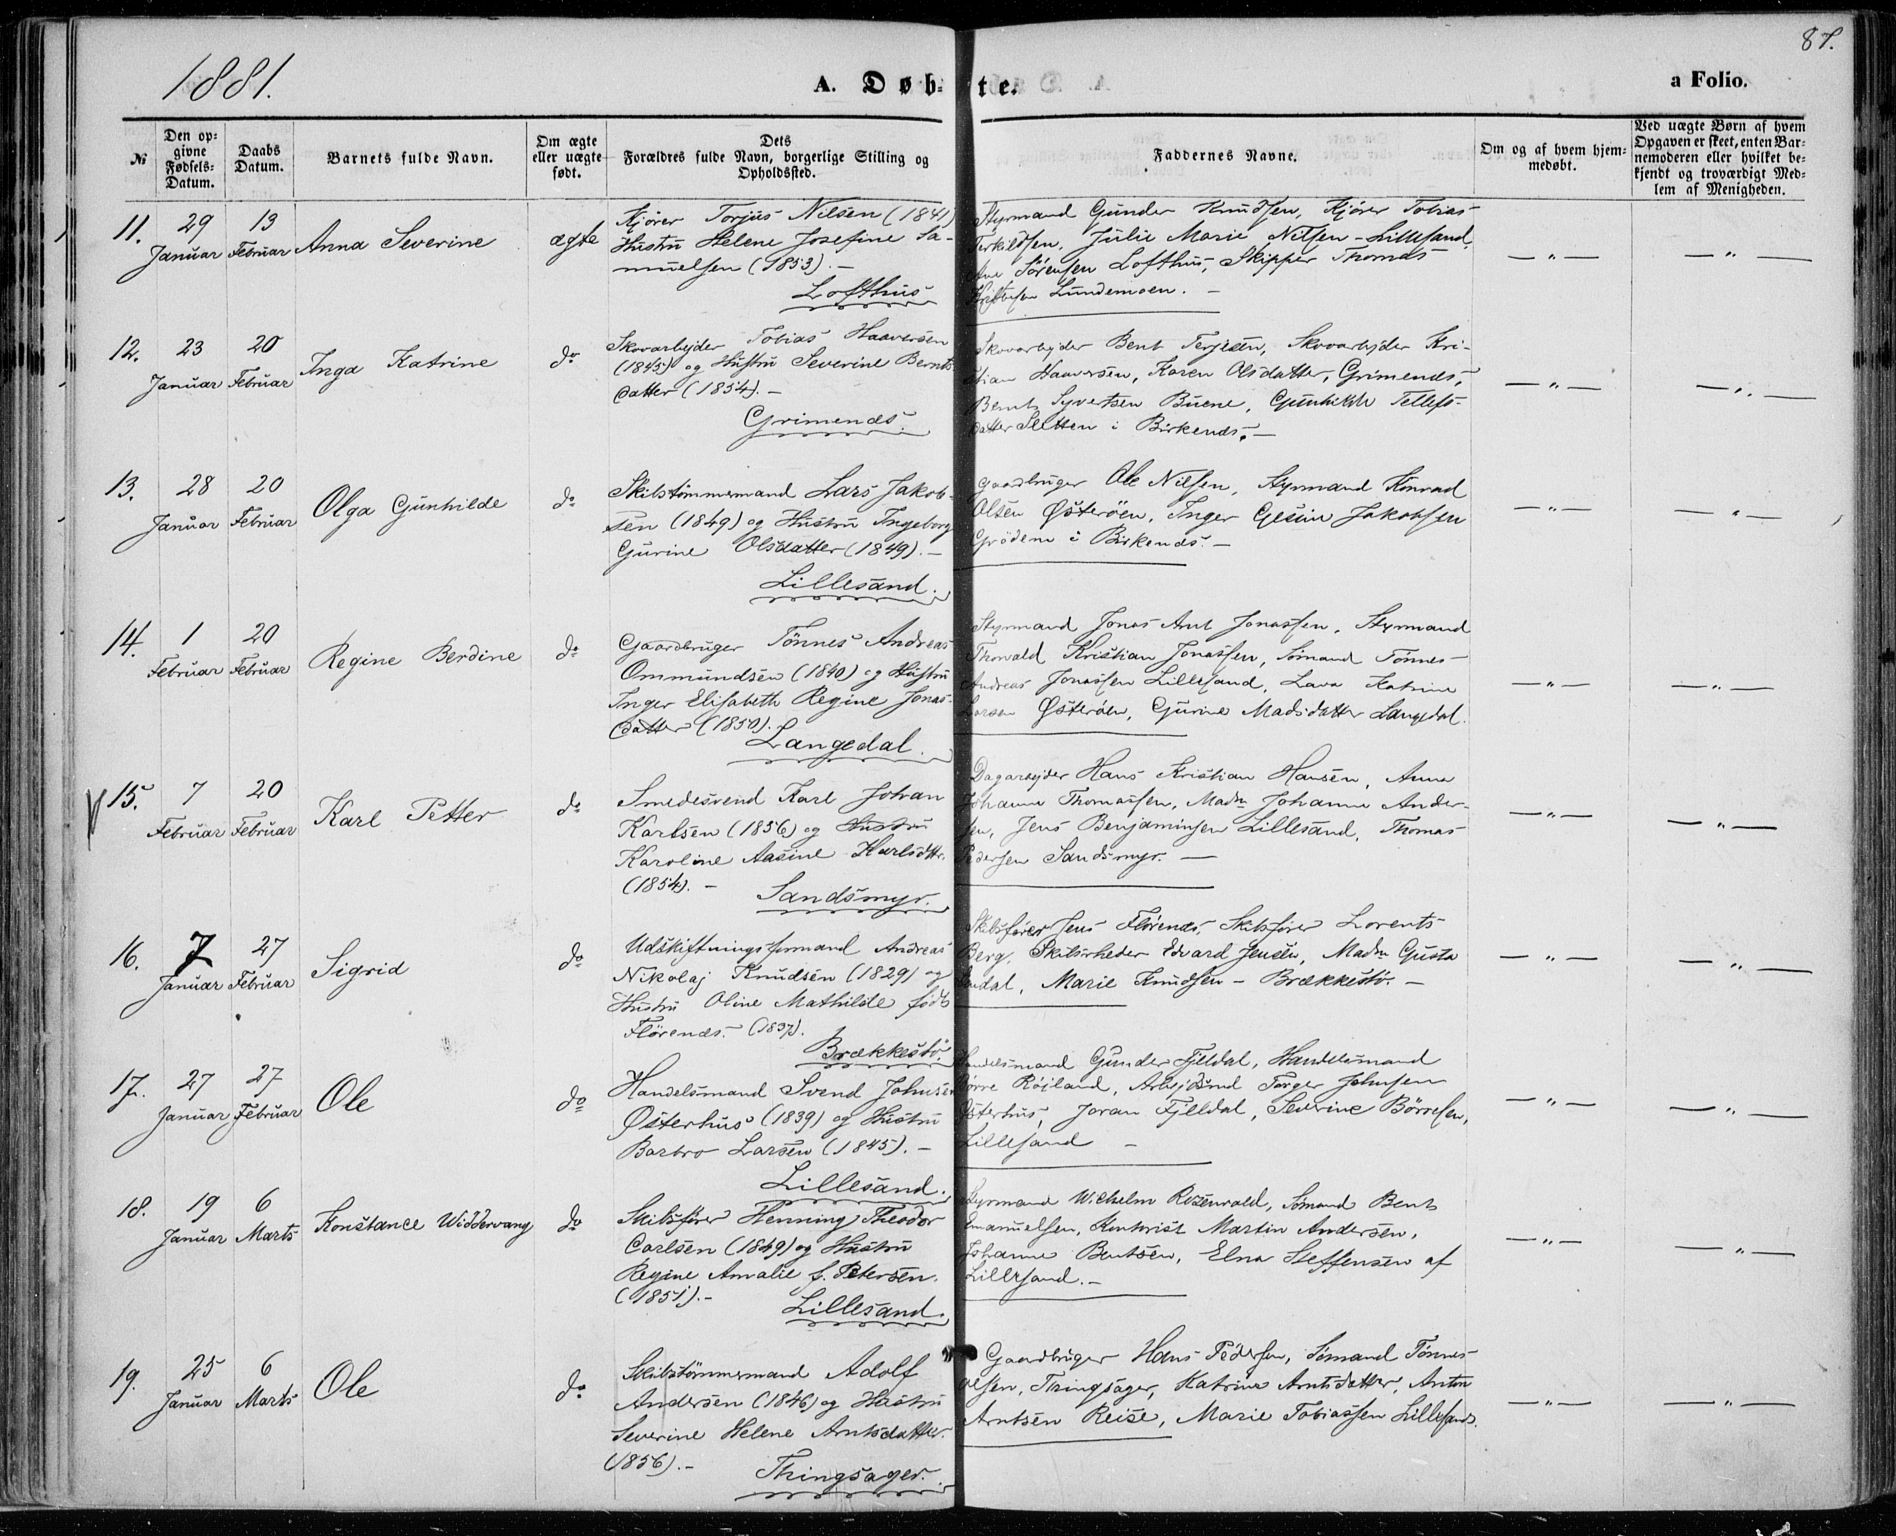 1881.
A. Døbte.
a Folio.
87.
№
Den opgivne Fødsels-Datum.
Daabs Datum.
Barnets fulde Navn.
Om ægte eller uægte født.
Dets Forældres fulde Navn, borgerlige Stilling og Opholdssted.
Faddernes Navne.
Om og af hvem hjemmedøbt.
Ved uægte Børn af hvem Opgaven er skeet, enten Barnemoderen eller hvilket bekjendt og troværdigt Medlem af Menigheden.
11. 29 Januar 13 Februar Anna Severine ægte
Kjører Torjus Nilsen (1841)
Hustru Helene Josefine Sa-
muelsen (1853). —
Lofthus
Styrmand Gunder Knudsen, Kjører Tobias
Terkildsen, Julie Marie Nilsen - Lillesand,
Sørensen Lofthus, Skipper Thomas
Lundemoen. —
— " — — " —
12. 23 Januar 20 Februar Inga Katrine do
Skovarbejder Tobias Haaversen
(1845) og Hustru Severine Bernts-
datter (1854). —
Grimenæs.
Skovarbejder Bent Terjesen, Skovarbejder Kri-
stian Haaversen, Karen Olsdatter, Grimenæs,
Bernt Syvertsen Buene, Gunhilde Tellefs-
datter Sletten i Birkenæs. —
— " — — " —
13. 28 Januar 20 Februar Olga Gunhilde do
Skibstømmermand Lars Jakob-
sen (1849) og Hustru Ingeborg
Gurine Olsdatter (1849). —
Lillesand.
Gaardbruger Ole Nilsen, Styrmand Konrad
Olsen Østerøen, Inger Gesine Jakobsen
Grødem i Birkenæs. —
— " — — " —
14. 1 Februar 20 Februar Regine Berdine do
Gaardbruger Tönnes Andreas
Ommundsen (1840) og Hustru
Inger Elisabeth Regine Jonas-
datter (1850).
Langedal.
Styrmand Jonas Arnt Jonassen, Styrmand
Thorvald Kristian Jonassen, Sømand Tønnes
Andreas Jonassen Lillesand, Lava Katrine
Larsen Østerøen, Gurine Madsdatter Langedal.
— " — — " —
15. 7 Februar 20 Februar Karl Petter do
Smedesvend Karl Johan
Karlsen (1856) og Hustru
Karoline Aasine Karlsdtr.
(1854). —
Sandsmyr.
Dagarbejder Hans Kristian Hansen, Anna
Johanne Thomassen, Madm Johanne Ander-
sen, Jens Benjaminsen Lillesand, Thomas
Pedersen Sandsmyr. —
— " — — " —
16. 7 Januar 27 Februar Sigrid do
Udskiftningsformand Andreas
Nikolaj Knudsen (1829) og
Hustru Oline Mathilde født
Flørenæs. (1837).
Brækkestø.
Skibsfører Jens Flørenæs, Skibsfører Lorents
Berg, Skibsrheder Edvard Jensen, Madm Gusta
Marie Knudsen - Brækkestø. —
— " — — " —
17. 27 Januar 27 Februar Ole do
Handelsmand Svend Johnsen
Østerhus (1839) og Hustru
Barbro Larsen (1845). —
Lillesand.
Handelsmand Gunder Fjeldal, Handelsmand
Børre Røiland, Arbejdsmd Torger Johnsen
Østerhus, Joran Fjeldal, Severine Børresen,
Lillesand —
— " — — " —
18. 19 Januar 6 Marts Konstance Widdervang do
Skibsfører Henning Theodor
Carlsen (1849) og Hustru
Regine Amalie f. Petersen.
(1851). —
Lillesand.
Styrmand Wilhelm Rozenvald, Sømand Bent
Emanuelsen, Kontorist Martin Andersen,
Johanne Bentsen, Elna Steffensen af
Lillesand. —
— " — — " —
19. 25 Januar 6 Marts Ole do
Skibstömmermand Adolf
Andersen (1846) og Hustru
Severine Helene Arntsdatter.
(1856). —
Thingsager.
Gaardbruger Hans Pedersen, Sömand Tönnes
Olsen, Thingsager, Katrine Arntsdatter, Anton
Arntsen Reise, Marie Tobiassen Lillesand.
— " — — " —